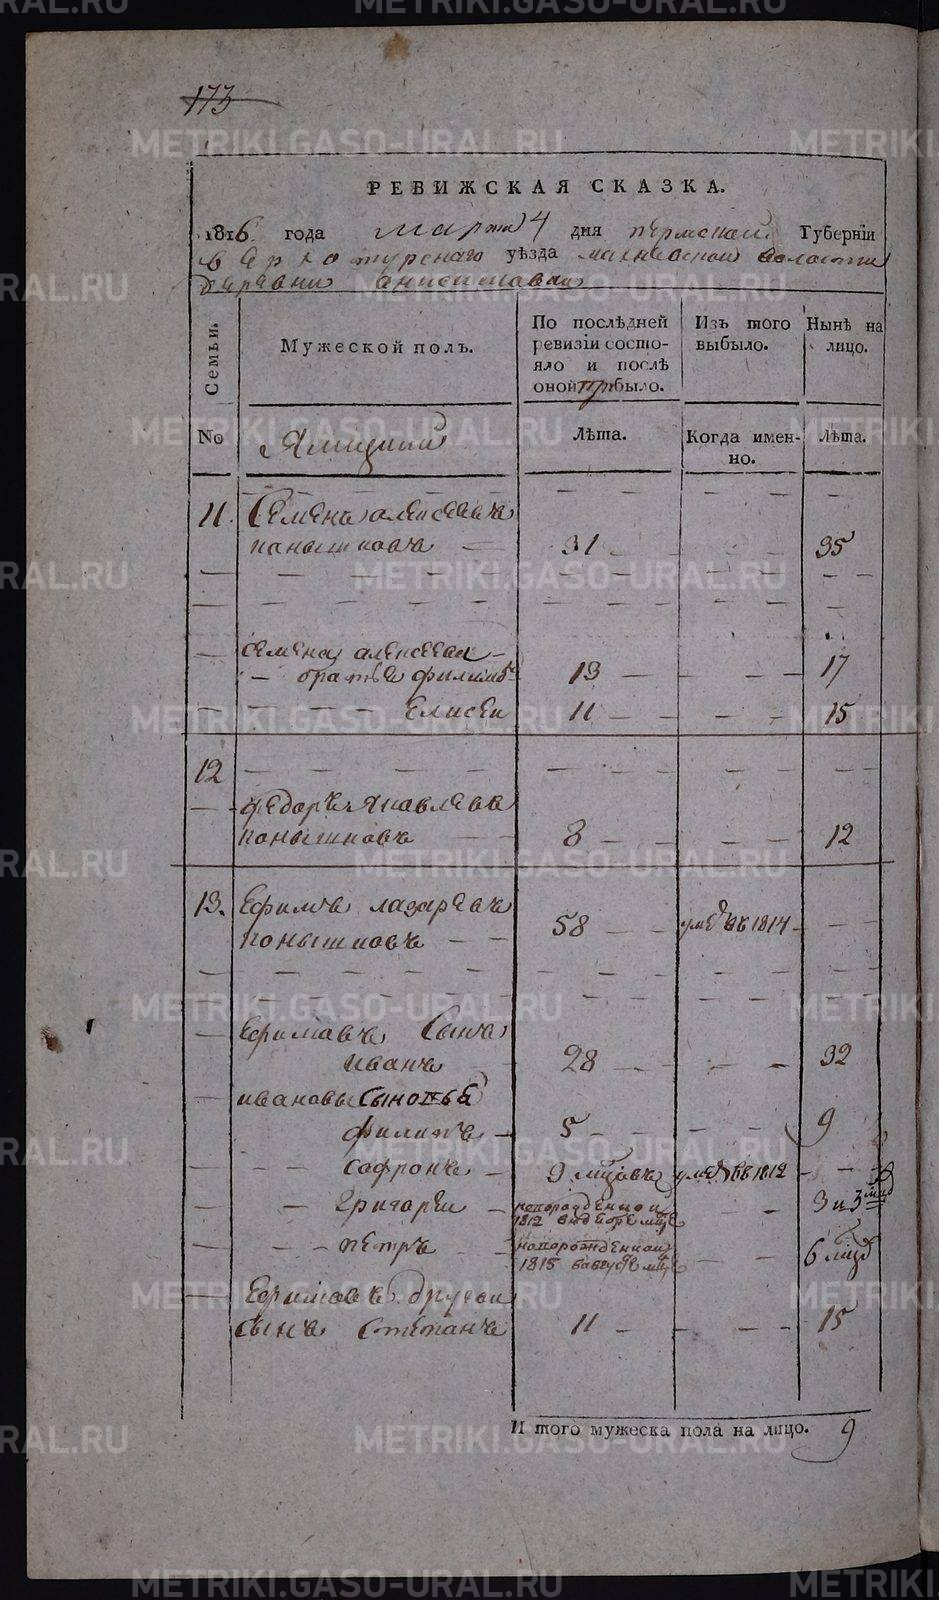 173
РЕВИЖСКАЯ СКАЗКА.
1816 года марта 4 дня пермской Губерніи
верхотурскаго уѣзда махневской волости
деревни анисимовки
Семьи. Мужеской полъ. По послѣдней ревизіи состояло и послѣ оной прибыло. Изъ того выбыло. Нынѣ на лицо.
No Ямщики Лѣта. Когда именно. Лѣта.
11. Семенъ алексеевъ
паньшиновъ 31 35
семена алексеева
братья филипъ 13 17
Елисеи 11 15
12
федоръ Яковлевъ
паньшиновъ 8 12
13. Ефимъ лазаревъ
поньшиновъ 58 умре въ 1814
Ефимовъ Сынъ
иванъ 28 32
ивановы Сыновья
филипъ 5 9
софронъ 9 мцовъ умре въ 1812
Григореи новорожденнои 3 и 3 мцд
1812 мце
петръ новорожденнои 6 мцд
1815 въ августе мце
Ефимовъ другои
сынъ Степанъ 11 15
И того мужеска пола на лицо. 9
METRIKI.GASO-URAL.RU